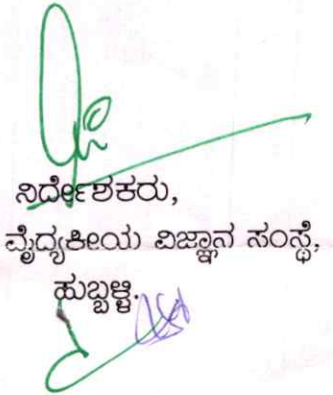 ನಿರ್ದೇಶಕರು,
ವೈದ್ಯಕೀಯ ವಿಜ್ಞಾನ ಸಂಸ್ಥೆ,
ಹುಬ್ಬಳ್ಳಿ.